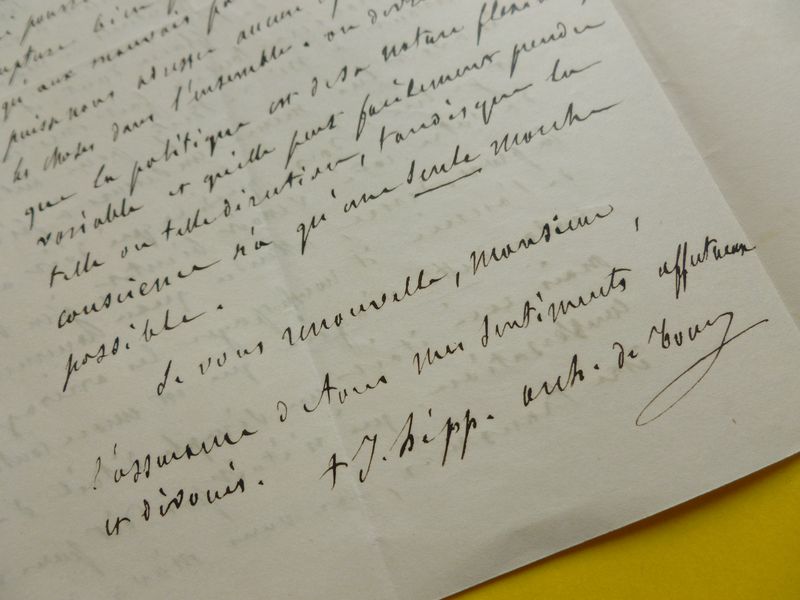 rupture bien
qu'aux mauvais
puisse nous adresser aucun
les choses dans l'ensemble. on
que la politique est de sa nature flexible,
variable et qu'elle peut facilement prendre
telle ou telle direction, tandis que la
conscience n'a qu'une seule marche
possible.
Je vous renouvelle, Monsieur,
l'assurance de tous mes sentiments affectueux
et dévoués. + J. hipp. arch. de Tours